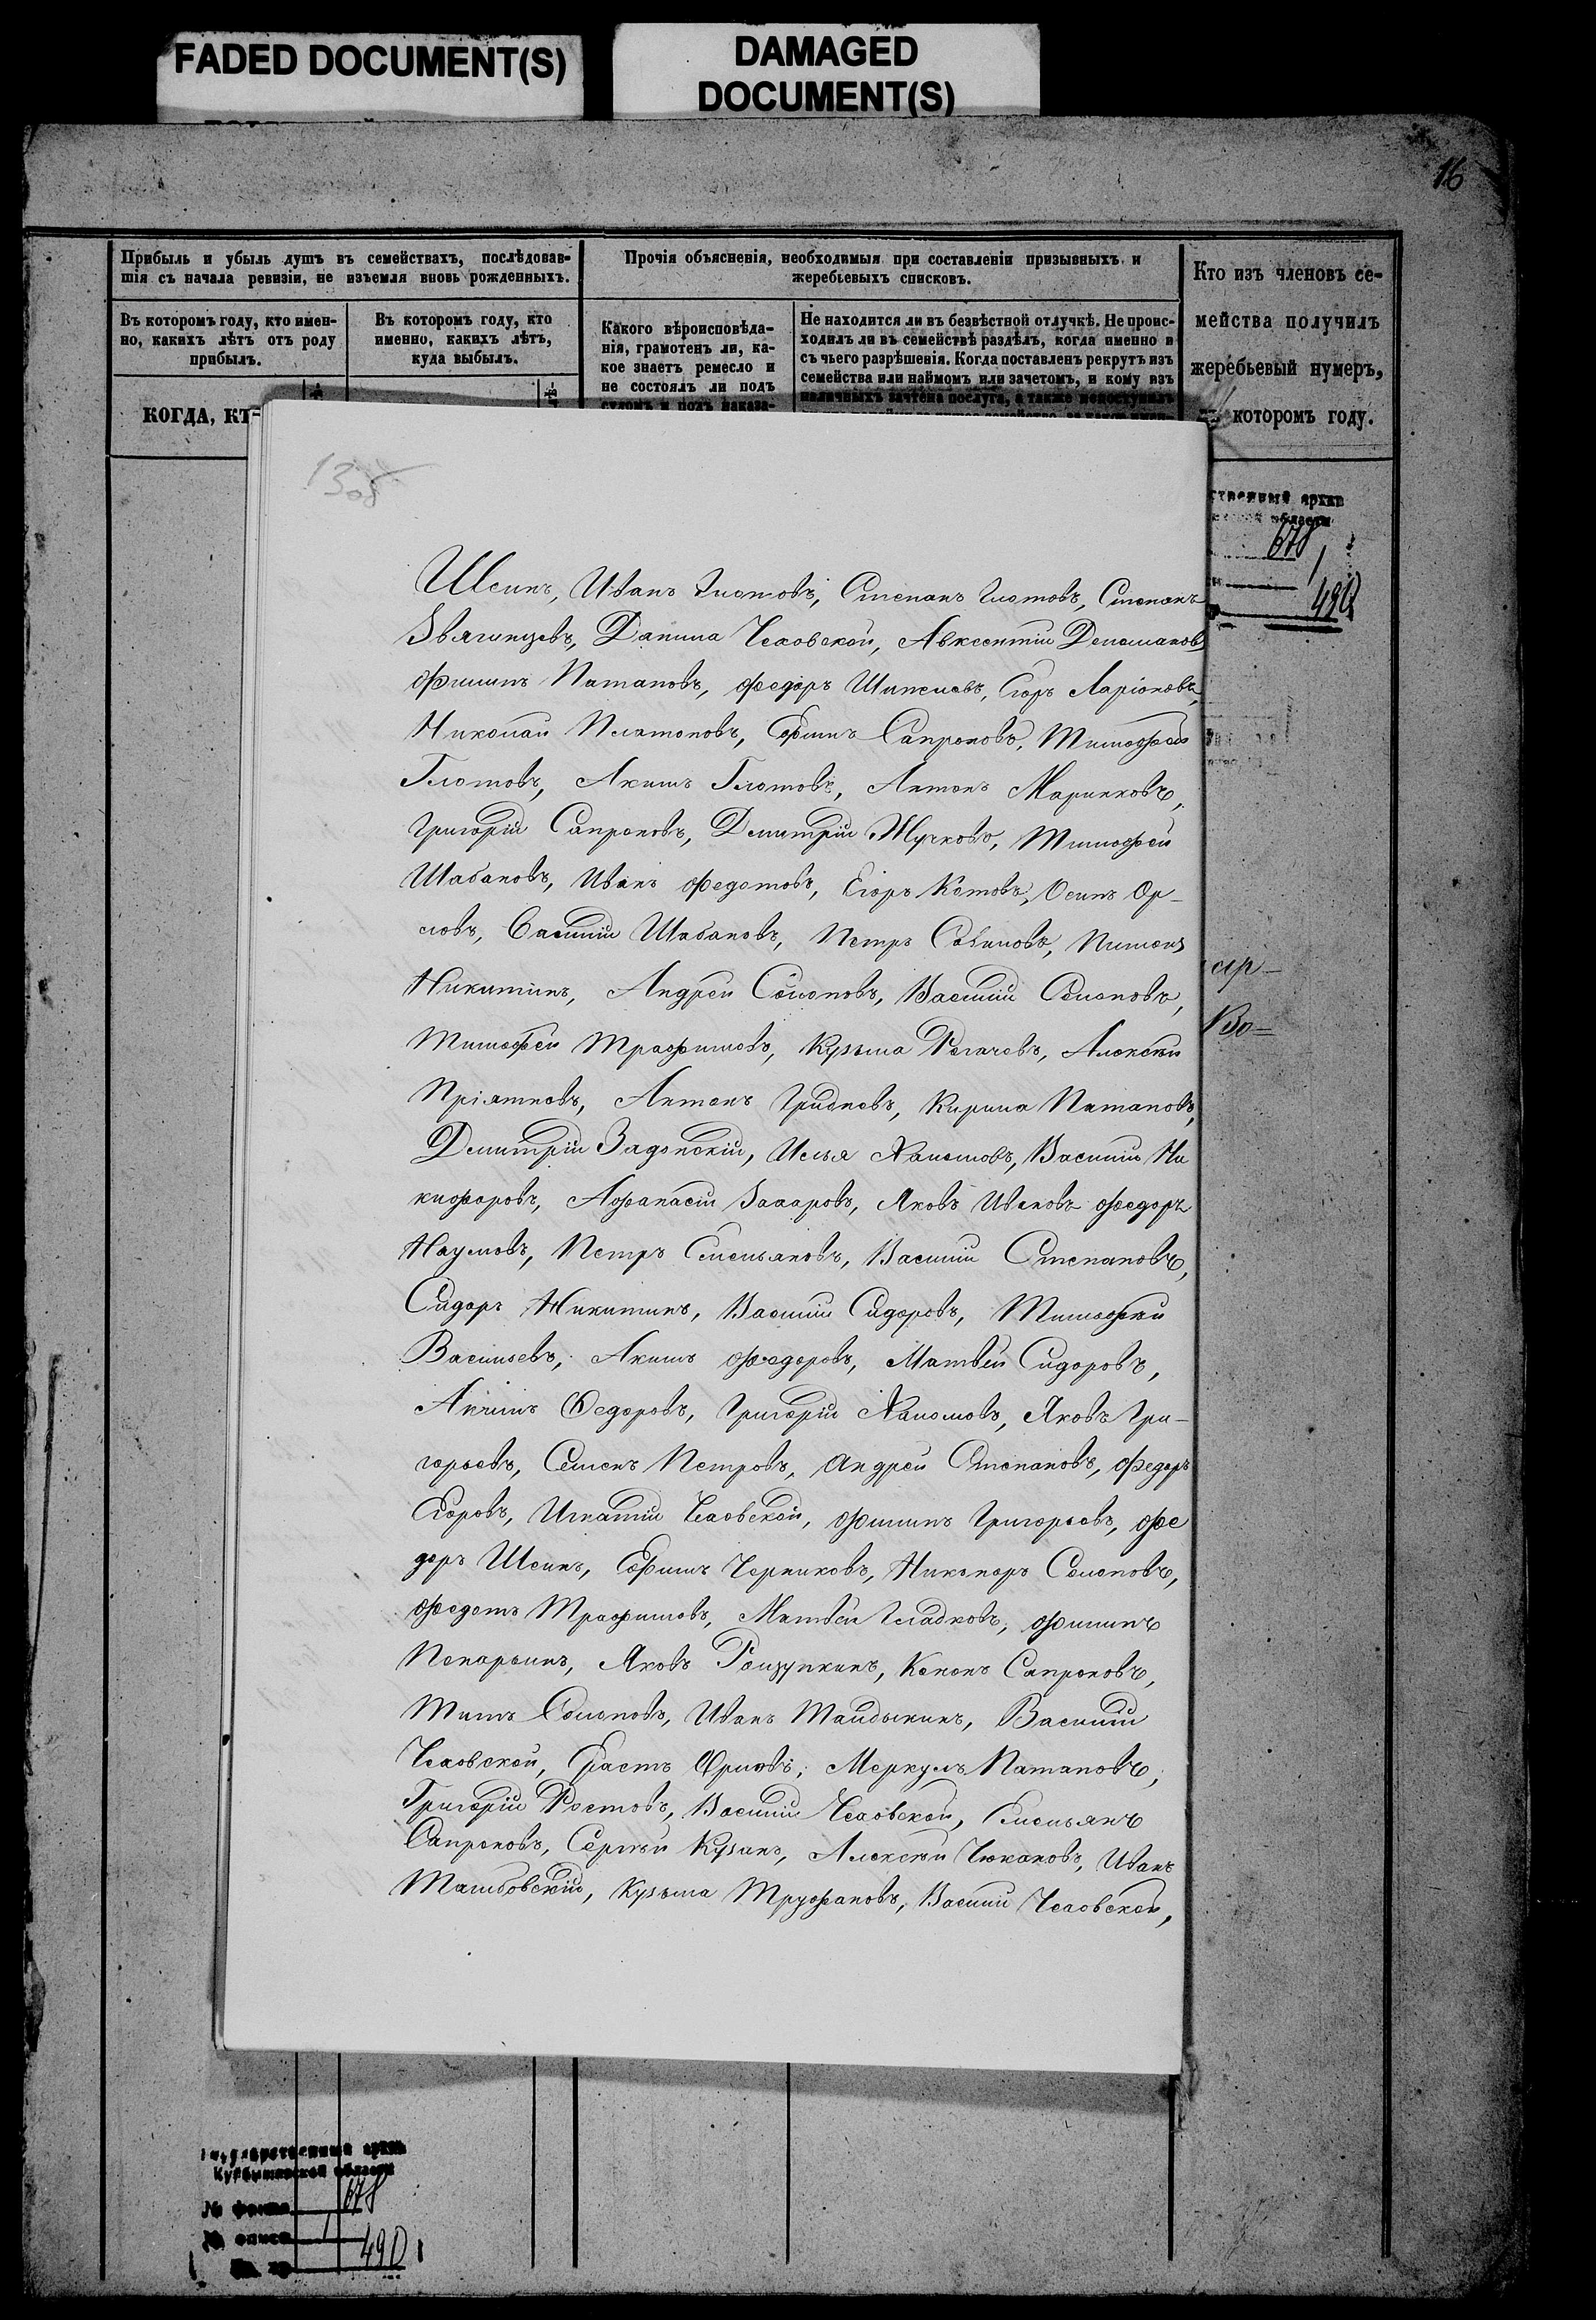 FADED DOCUMENT(S)
DAMAGED
DOCUMENT(S)
16
Прибыль и убыль душъ въ семействахъ, послѣдовав-
шія съ начала ревизіи, не изъемля вновь рожденныхъ.
Въ которомъ году, кто имен-
но, какихъ лѣтъ отъ роду
прибылъ.
КОГДА, КТ
Въ которомъ году, кто
именно, какихъ лѣтъ,
куда выбылъ.
Прочія объясненія, необходимыя при составленіи призывныхъ и
жеребьевыхъ списковъ.
Какого вѣроисповѣда-
нія, грамотенъ ли, ка-
кое знаетъ ремесло и
не состоялъ ли подъ
судомъ и подъ наказа-
Не находится ли въ безвѣстной отлучкѣ. Не проис-
ходилъ ли въ семействѣ раздѣлъ, когда именно и
съ чьего разрѣшенія. Когда поставленъ рекрутъ изъ
семейства или наймомъ или зачетомъ, и кому изъ
наличныхъ зачтена послуга, а также
Кто изъ членовъ се-
мейства получилъ
жеребьевый нумеръ,
которомъ году.
13об
Шеинъ, Иванъ Глотовъ, Степанъ Глотовъ, Степанъ
Звягинцевъ, Данила Чеховской, Авксентій
Филипъ Патаповъ, Федоръ Шипиловъ, Егоръ Ларіоновъ,
Николай Платоновъ, Ефимъ Сапроновъ, Тимофей
Глотовъ, Акимъ Глотовъ, Антонъ Маринковъ,
Григорій Сапроновъ, Дмитрій Жучковъ, Тимофей
Шабановъ, Иванъ Федотовъ, Егоръ Котовъ, Осипъ Ор-
ловъ, Василій Шабановъ, Петръ Савиновъ, Пименъ
Никитинъ, Андрей Семеновъ, Василій Семеновъ,
Тимофей Трафимовъ, Кузьма Рогачевъ, Алексѣй
Пріятновъ, Антонъ Гридневъ, Кирила Патаповъ,
Дмитрій Задонскій, Илья Халомовъ, Василій Ни
кифоровъ, Афанасій Захаровъ, Яковъ Ивановъ Федоръ
Наумовъ, Петръ Емельяновъ, Василій Степановъ,
Сидоръ Никитинъ, Василій Сидоровъ, Тимофѣй
Васильевъ, Акимъ Федоровъ, Матвѣй Сидоровъ,
Акимъ Федоровъ, Григорій Халомовъ, Яковъ Гри-
горьевъ, Семенъ Петровъ, Андрей Степановъ, Федоръ
Егоровъ, Игнатій Чеховской, Филипъ Григорьевъ, Фе
доръ Шеинъ, Ефимъ Черниковъ, Никаноръ Семеновъ,
Федотъ Трафимовъ, Матвѣй Гладковъ, Филипъ
Яковъ Кононъ Сапроновъ,
Титъ Семеновъ, Иванъ Талдыкинъ, Василій
Чеховской, Ерастъ Меркулъ Патаповъ,
Григорій Ростовъ, Василій Чеховской, Емельянъ
Сапроновъ, Сергѣй Алексѣй Чюкановъ, Иванъ
Тамбовскій, Кузьма Труфановъ, Василій Чеховской,
ственный архив
области
678
1
490
ар-
Во-
Государственный архив
Куйбышевской области
№ фонда 678
№ описи 1
490